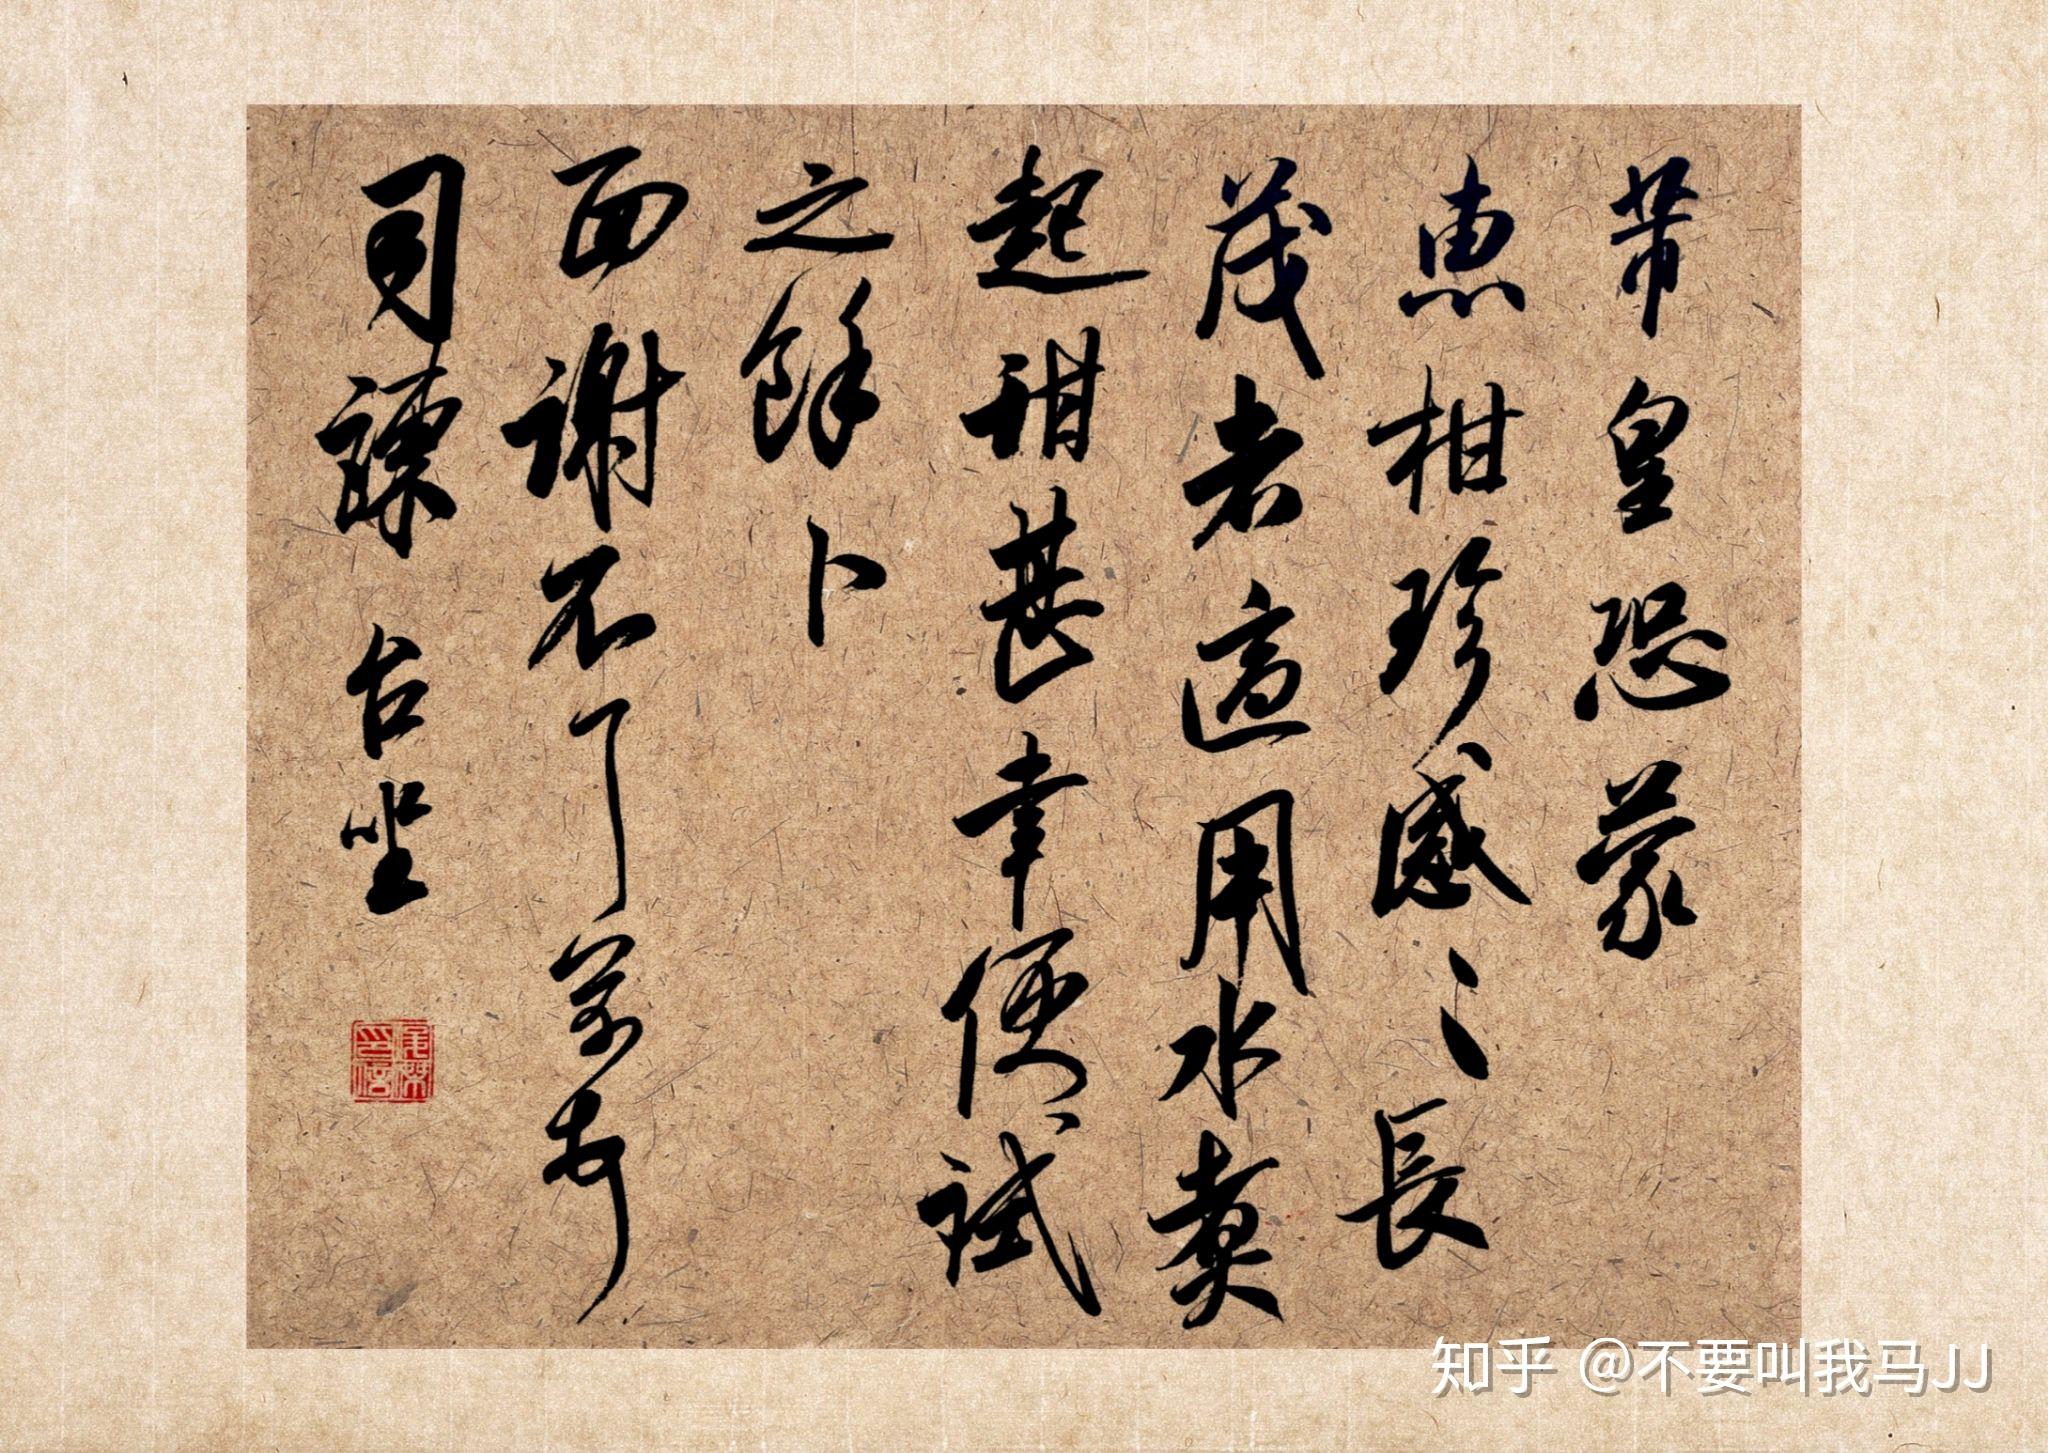 芾皇恐蒙
惠柑珍感〻長
茂者適用水煮
起甜甚幸便試
之餘卜
面謝不
司諫台坐
知乎 @不要叫我马JJ